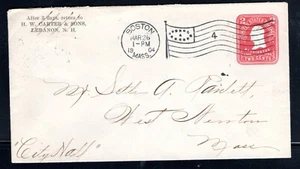 After 5 days, return to
H. W. CARTER & SONS,
LEBANON, N. H.
BOSTON
MAR 26
1-PM
19 04
MASS.
4
2 2
TWO CENTS
Mr. Seth A.
West Newton
Mass
"City Hall"